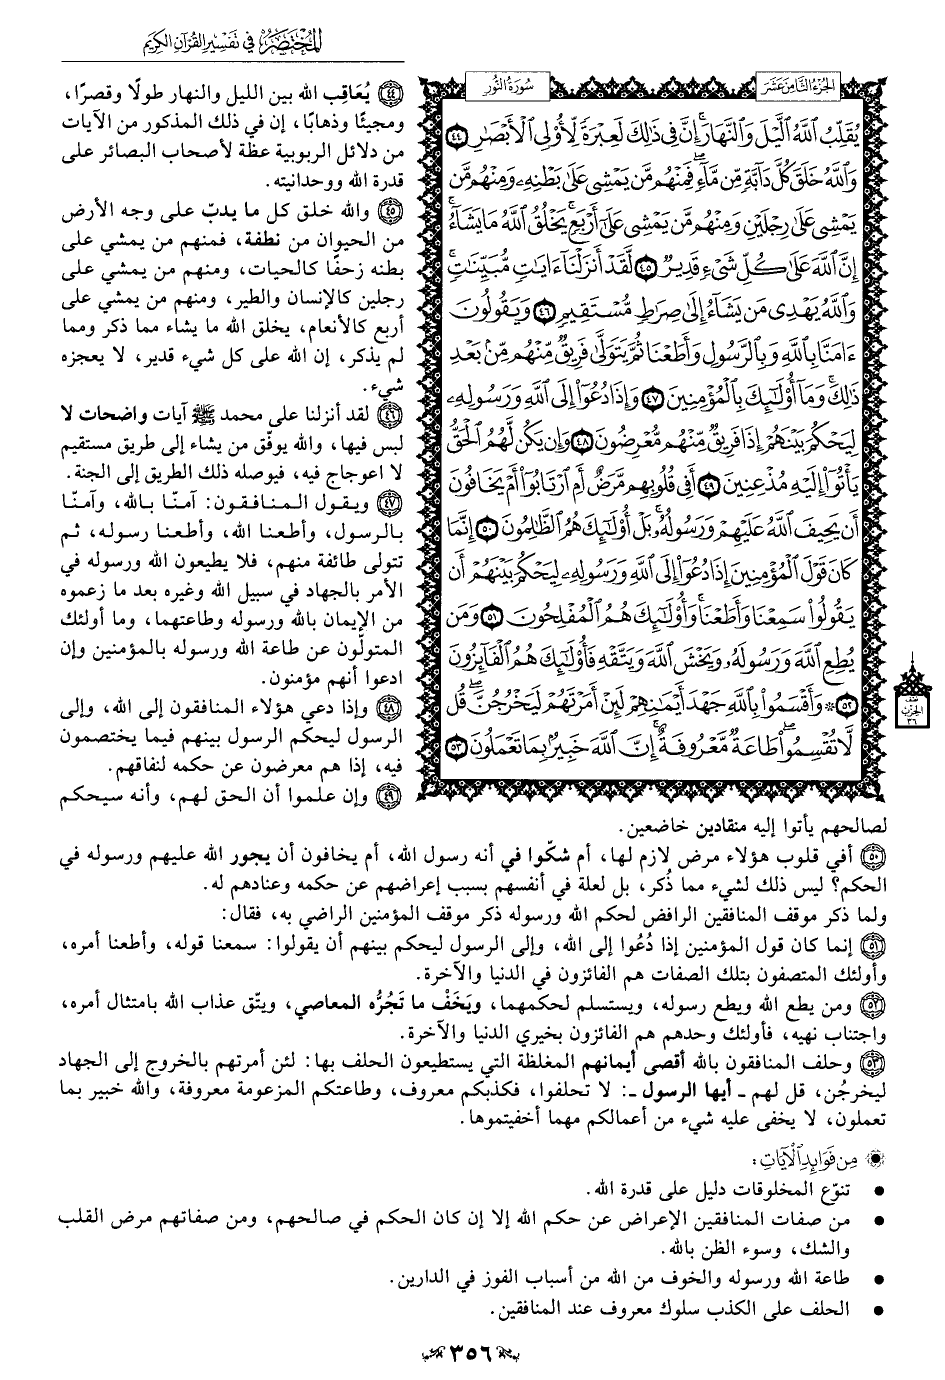 المختصر في تفسير القرآن الكريم
سورة النور
الجزء الثامن عشر
يُقَلِّبُ ٱللَّهُ ٱلَّيۡلَ وَٱلنَّهَارَۚ إِنَّ فِي ذَٰلِكَ لَعِبۡرَةٗ لِّأُوْلِي ٱلۡأَبۡصَٰرِ ٤٤
وَٱللَّهُ خَلَقَ كُلَّ دَآبَّةٖ مِّن مَّآءٖۖ فَمِنۡهُم مَّن يَمۡشِي عَلَىٰ بَطۡنِهِۦ وَمِنۡهُم مَّن
يَمۡشِي عَلَىٰ رِجۡلَيۡنِ وَمِنۡهُم مَّن يَمۡشِي عَلَىٰٓ أَرۡبَعٖۚ يَخۡلُقُ ٱللَّهُ مَا يَشَآءُۚ
إِنَّ ٱللَّهَ عَلَىٰ كُلِّ شَيۡءٖ قَدِيرٞ ٤٥ لَّقَدۡ أَنزَلۡنَآ ءَايَٰتٖ مُّبَيِّنَٰتٖۚ
وَٱللَّهُ يَهۡدِي مَن يَشَآءُ إِلَىٰ صِرَٰطٖ مُّسۡتَقِيمٖ ٤٦ وَيَقُولُونَ
ءَامَنَّا بِٱللَّهِ وَبِٱلرَّسُولِ وَأَطَعۡنَا ثُمَّ يَتَوَلَّىٰ فَرِيقٞ مِّنۡهُم مِّنۢ بَعۡدِ
ذَٰلِكَۚ وَمَآ أُوْلَٰٓئِكَ بِٱلۡمُؤۡمِنِينَ ٤٧ وَإِذَا دُعُوٓاْ إِلَى ٱللَّهِ وَرَسُولِهِۦ
لِيَحۡكُمَ بَيۡنَهُمۡ إِذَا فَرِيقٞ مِّنۡهُم مُّعۡرِضُونَ ٤٨ وَإِن يَكُن لَّهُمُ ٱلۡحَقُّ
يَأۡتُوٓاْ إِلَيۡهِ مُذۡعِنِينَ ٤٩ أَفِي قُلُوبِهِم مَّرَضٌ أَمِ ٱرۡتَابُوٓاْ أَمۡ يَخَافُونَ
أَن يَحِيفَ ٱللَّهُ عَلَيۡهِمۡ وَرَسُولُهُۥۚ بَلۡ أُوْلَٰٓئِكَ هُمُ ٱلظَّٰلِمُونَ ٥٠ إِنَّمَا
كَانَ قَوۡلَ ٱلۡمُؤۡمِنِينَ إِذَا دُعُوٓاْ إِلَى ٱللَّهِ وَرَسُولِهِۦ لِيَحۡكُمَ بَيۡنَهُمۡ أَن
يَقُولُواْ سَمِعۡنَا وَأَطَعۡنَاۚ وَأُوْلَٰٓئِكَ هُمُ ٱلۡمُفۡلِحُونَ ٥١ وَمَن
يُطِعِ ٱللَّهَ وَرَسُولَهُۥ وَيَخۡشَ ٱللَّهَ وَيَتَّقۡهِ فَأُوْلَٰٓئِكَ هُمُ ٱلۡفَآئِزُونَ
٥٢ ۞ وَأَقۡسَمُواْ بِٱللَّهِ جَهۡدَ أَيۡمَٰنِهِمۡ لَئِنۡ أَمَرۡتَهُمۡ لَيَخۡرُجُنَّۖ قُل
لَّا تُقۡسِمُواْۖ طَاعَةٞ مَّعۡرُوفَةٌۚ إِنَّ ٱللَّهَ خَبِيرُۢ بِمَا تَعۡمَلُونَ ٥٣
نصف
الحزب
٣٦
٤٤ يُعَاقِب الله بين الليل والنهار طولًا وقصرًا،
ومجيئًا وذهابًا، إن في ذلك المذكور من الآيات
من دلائل الربوبية عظة لأصحاب البصائر على
قدرة الله ووحدانيته.
٤٥ والله خلق كل ما يدبّ على وجه الأرض
من الحيوان من نطفة، فمنهم من يمشي على
بطنه زحفًا كالحيات، ومنهم من يمشي على
رجلين كالإنسان والطير، ومنهم من يمشي على
أربع كالأنعام، يخلق الله ما يشاء مما ذكر ومما
لم يذكر، إن الله على كل شيء قدير، لا يعجزه
شيء.
٤٦ لقد أنزلنا على محمد ﷺ آيات واضحات لا
لبس فيها، والله يوفّق من يشاء إلى طريق مستقيم
لا اعوجاج فيه، فيوصله ذلك الطريق إلى الجنة.
٤٧ ويقول المنافقون: آمنّا بالله، وآمنّا
بالرسول، وأطعنا الله، وأطعنا رسوله، ثم
تتولى طائفة منهم، فلا يطيعون الله ورسوله في
الأمر بالجهاد في سبيل الله وغيره بعد ما زعموه
من الإيمان بالله ورسوله وطاعتهما، وما أولئك
المتولُّون عن طاعة الله ورسوله بالمؤمنين وإن
ادعوا أنهم مؤمنون.
٤٨ وإذا دعي هؤلاء المنافقون إلى الله، وإلى
الرسول ليحكم الرسول بينهم فيما يختصمون
فيه، إذا هم معرضون عن حكمه لنفاقهم.
٤٩ وإن علموا أن الحق لهم، وأنه سيحكم
لصالحهم يأتوا إليه منقادين خاضعين.
٥٠ أفي قلوب هؤلاء مرض لازم لها، أم شكّوا في أنه رسول الله، أم يخافون أن يجور الله عليهم ورسوله في
الحكم؟ ليس ذلك لشيء مما ذُكر، بل لعلة في أنفسهم بسبب إعراضهم عن حكمه وعنادهم له.
ولما ذكر موقف المنافقين الرافض لحكم الله ورسوله ذكر موقف المؤمنين الراضي به، فقال:
٥١ إنما كان قول المؤمنين إذا دُعُوا إلى الله، وإلى الرسول ليحكم بينهم أن يقولوا: سمعنا قوله، وأطعنا أمره،
وأولئك المتصفون بتلك الصفات هم الفائزون في الدنيا والآخرة.
٥٢ ومن يطع الله ويطع رسوله، ويستسلم لحكمهما، ويَخَفْ ما تَجُرُّه المعاصي، ويتّق عذاب الله بامتثال أمره،
واجتناب نهيه، فأولئك وحدهم هم الفائزون بخيري الدنيا والآخرة.
٥٣ وحلف المنافقون بالله أقصى أيمانهم المغلظة التي يستطيعون الحلف بها: لئن أمرتهم بالخروج إلى الجهاد
ليخرجُن، قل لهم ـ أيها الرسول ـ: لا تحلفوا، فكذبكم معروف، وطاعتكم المزعومة معروفة، والله خبير بما
تعملون، لا يخفى عليه شيء من أعمالكم مهما أخفيتموها.
من فوائد الآيات:
• تنوّع المخلوقات دليل على قدرة الله.
• من صفات المنافقين الإعراض عن حكم الله إلا إن كان الحكم في صالحهم، ومن صفاتهم مرض القلب
والشك، وسوء الظن بالله.
• طاعة الله ورسوله والخوف من الله من أسباب الفوز في الدارين.
• الحلف على الكذب سلوك معروف عند المنافقين.
٣٥٦